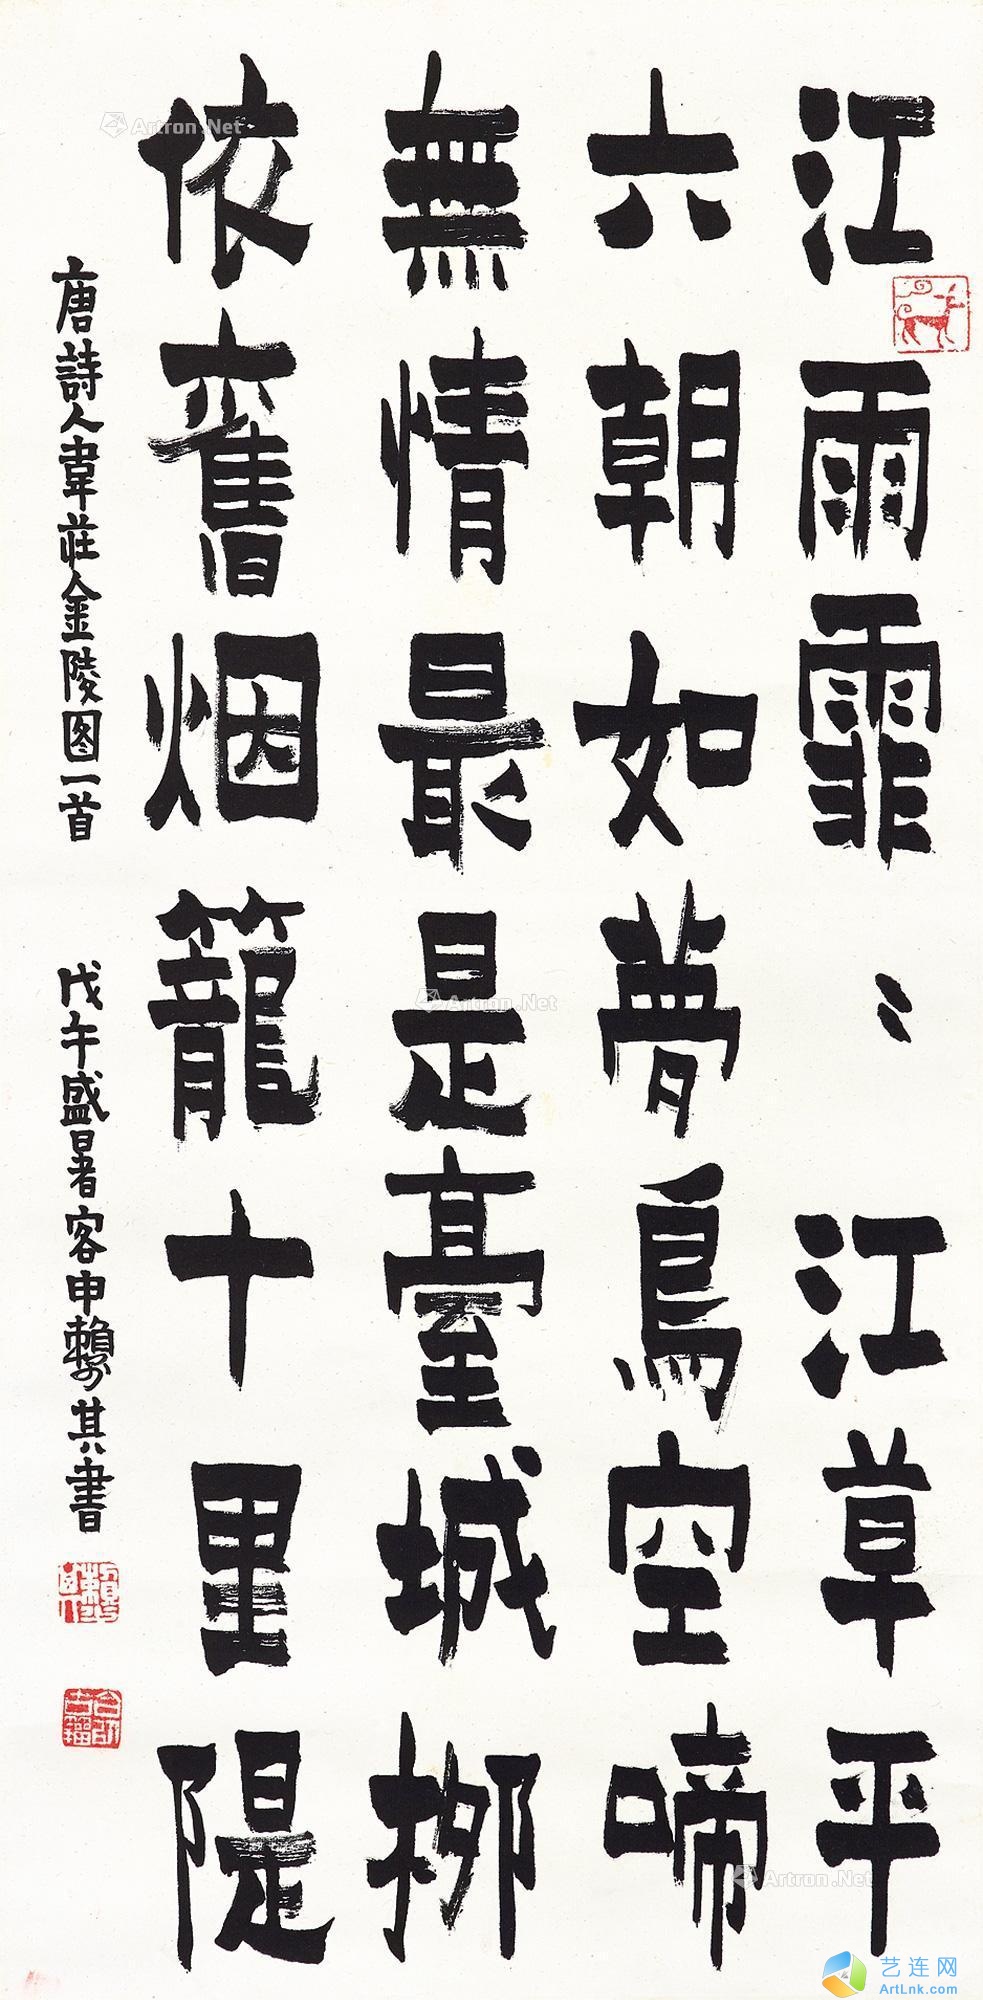 江雨霏〻江草平
六朝如夢鳥空啼
無情最是臺城柳
依舊烟籠十里隄
唐詩人韋莊金陵图一首 戊午盛暑客申賴少其書
Artron.Net
Artron.Net
Artron.Net
艺连网
ArtLink.com